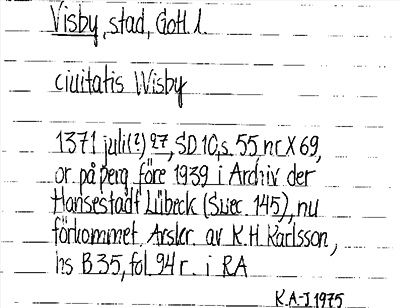 Visby, stad, Gotl.
ciuitatis Wisby
1371 juli(?) 27, SD 10, s. 55 nr X 69,
or. på perg före 1939 i Archiv der
Hansestadt Lübeck (Suec. 145), nu
förkommet. Avskr. av K.H. Karlsson,
hs B 35, fol. 94 r. i RA
K A-J 1975